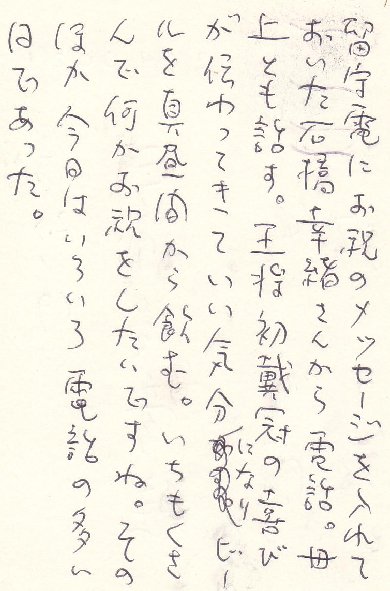 留守電にお祝のメッセージを入れて
おいた石橋幸緒さんから電話。母
上とも話す。王将初戴冠の喜び
が伝わってきていい気分になりビー
ルを真昼間から飲む。いちもくさ
んで何かお祝をしたいですね。その
ほか今日はいろいろ電話の多い
日であった。